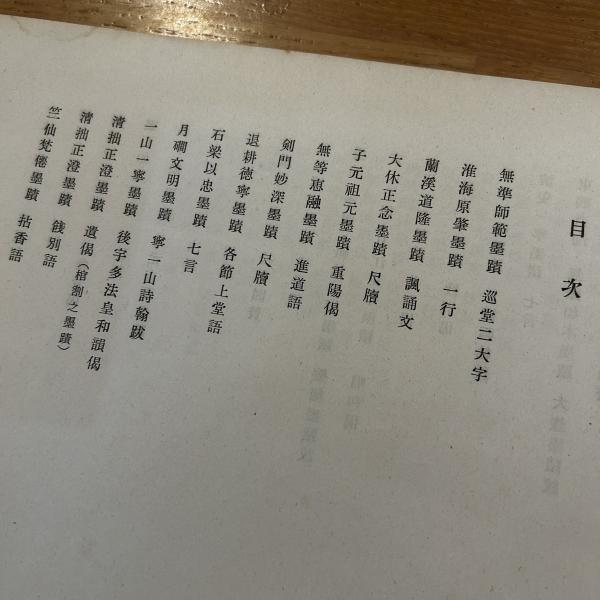 目次
無準師範墨蹟 巡堂二大字
淮海原肇墨蹟 一行
蘭溪道隆墨蹟 諷誦文
大休正念墨蹟 尺牘
子元祖元墨蹟 重陽偈
無等惠融墨蹟 進道語
剣門妙深墨蹟 尺牘
退耕徳寧墨蹟 各節上堂語
石梁以忠墨蹟 七言
月礀文明墨蹟 寧一山詩翰跋
一山一寧墨蹟 後宇多法皇和韻偈
清拙正澄墨蹟 遺偈(棺割之墨蹟)
清拙正澄墨蹟 餞別語
竺仙梵僊墨蹟 拈香語